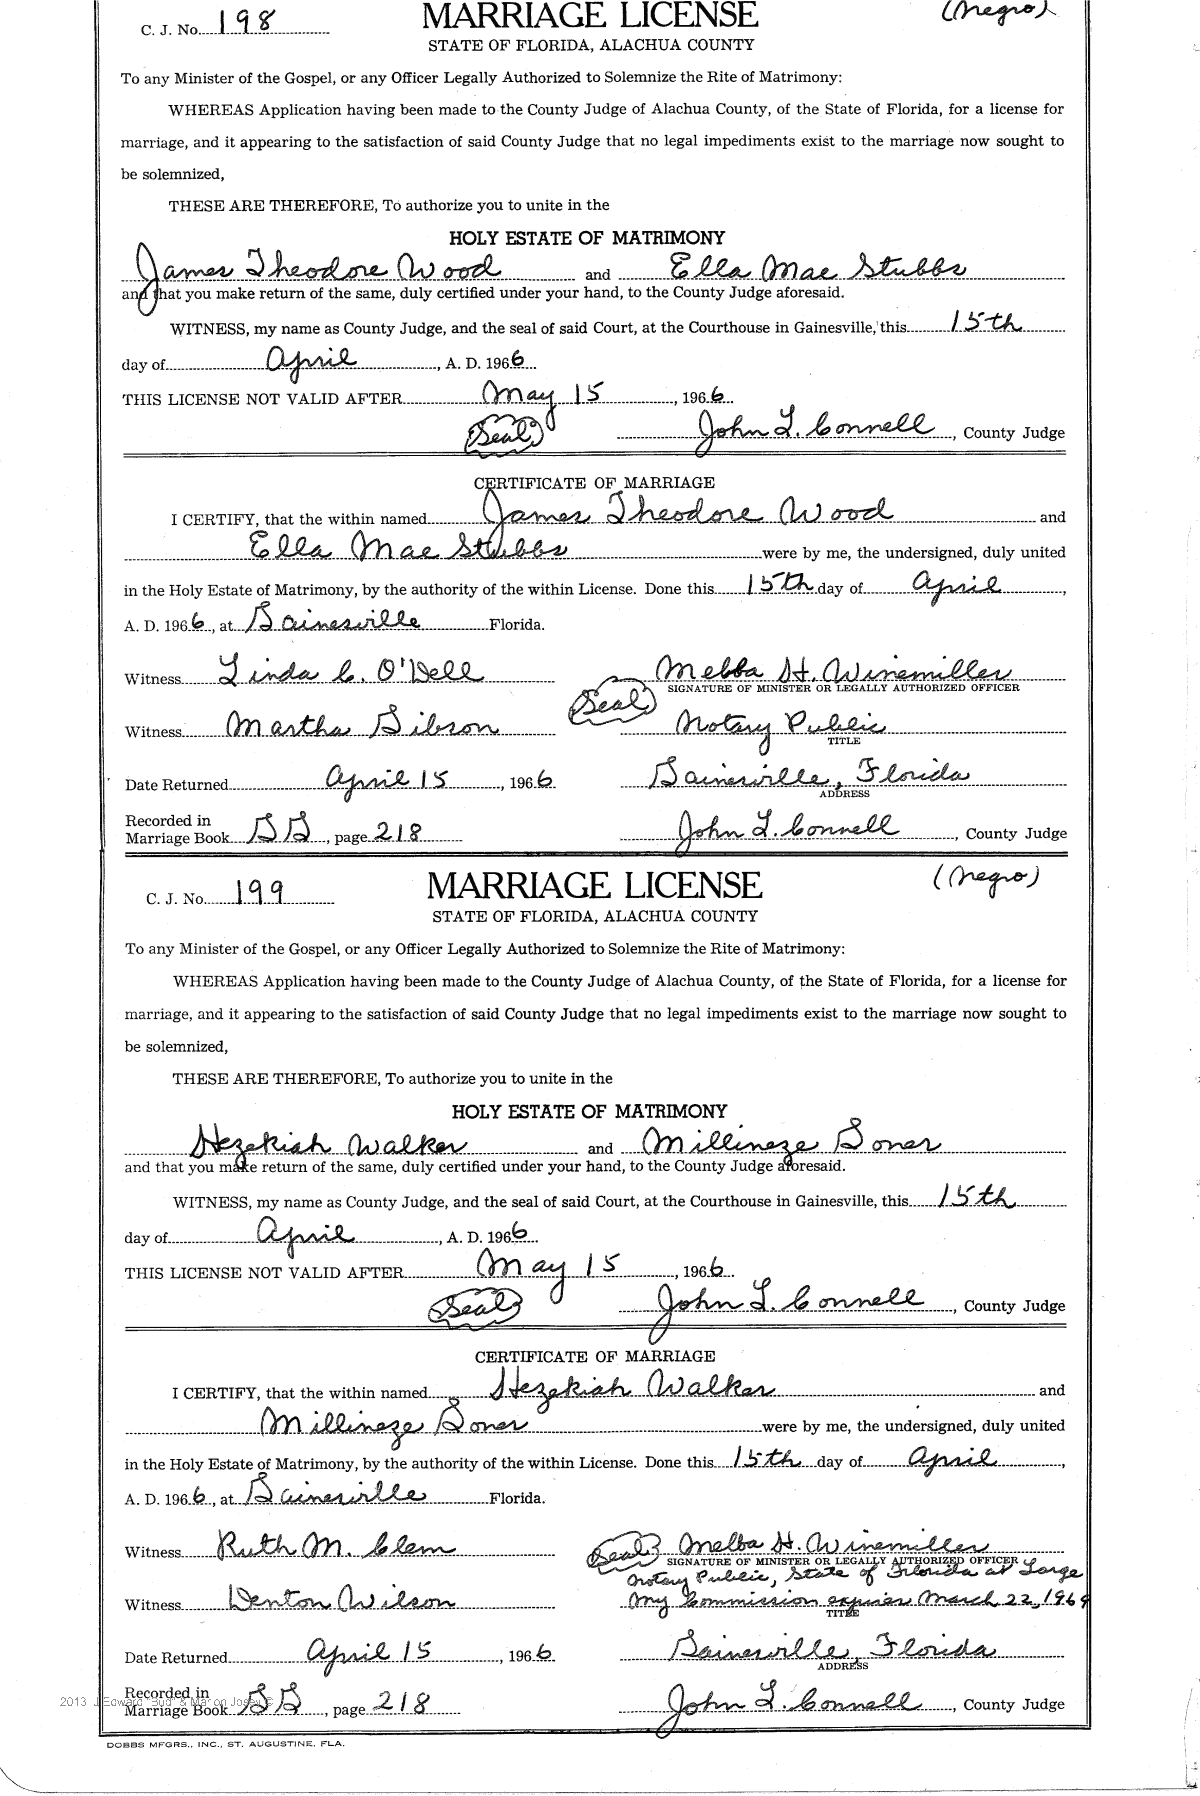 C. J. No. 198 MARRIAGE LICENSE (Negro)
STATE OF FLORIDA, ALACHUA COUNTY
To any Minister of the Gospel, or any Officer Legally Authorized to Solemnize the Rite of Matrimony:
WHEREAS Application having been made to the County Judge of Alachua County, of the State of Florida, for a license for
marriage, and it appearing to the satisfaction of said County Judge that no legal impediments exist to the marriage now sought to
be solemnized,
THESE ARE THEREFORE, To authorize you to unite in the
HOLY ESTATE OF MATRIMONY
James Theodore Wood and Ella Mae Stubbs
and that you make return of the same, duly certified under your hand, to the County Judge aforesaid.
WITNESS, my name as County Judge, and the seal of said Court, at the Courthouse in Gainesville, this 15th
day of April, A. D. 1966
THIS LICENSE NOT VALID AFTER May 15, 1966
(Seal) John L. Connell, County Judge
CERTIFICATE OF MARRIAGE
I CERTIFY, that the within named James Theodore Wood and
Ella Mae Stubbs were by me, the undersigned, duly united
in the Holy Estate of Matrimony, by the authority of the within License. Done this 15th day of April,
A. D. 1966, at Gainesville Florida.
Witness Linda C. O'Dell Melba H. Winemiller
(Seal) SIGNATURE OF MINISTER OR LEGALLY AUTHORIZED OFFICER
Witness Martha Gibson Notary Public
TITLE
Date Returned April 15, 1966 Gainesville, Florida
ADDRESS
Recorded in
Marriage Book GG, page 218 John L. Connell, County Judge
C. J. No. 199 MARRIAGE LICENSE (Negro)
STATE OF FLORIDA, ALACHUA COUNTY
To any Minister of the Gospel, or any Officer Legally Authorized to Solemnize the Rite of Matrimony:
WHEREAS Application having been made to the County Judge of Alachua County, of the State of Florida, for a license for
marriage, and it appearing to the satisfaction of said County Judge that no legal impediments exist to the marriage now sought to
be solemnized,
THESE ARE THEREFORE, To authorize you to unite in the
HOLY ESTATE OF MATRIMONY
Hezekiah Walker and Millineze Goner
and that you make return of the same, duly certified under your hand, to the County Judge aforesaid.
WITNESS, my name as County Judge, and the seal of said Court, at the Courthouse in Gainesville, this 15th
day of April, A. D. 1966
THIS LICENSE NOT VALID AFTER May 15, 1966
(Seal) John L. Connell, County Judge
CERTIFICATE OF MARRIAGE
I CERTIFY, that the within named Hezekiah Walker and
Millineze Goner were by me, the undersigned, duly united
in the Holy Estate of Matrimony, by the authority of the within License. Done this 15th day of April,
A. D. 1966, at Gainesville Florida.
Witness Ruth M. Clem (Seal) Melba H. Winemiller
SIGNATURE OF MINISTER OR LEGALLY AUTHORIZED OFFICER
Notary Public, State of Florida at Large
Witness Denton Wilson My Commission expires March 22, 1969
TITLE
Date Returned April 15, 1966 Gainesville, Florida
ADDRESS
Recorded in
2013 J Edward "Bud" & Marion Josey ©
Marriage Book GG, page 218 John L. Connell, County Judge
DOBBS MFGRS., INC., ST. AUGUSTINE, FLA.